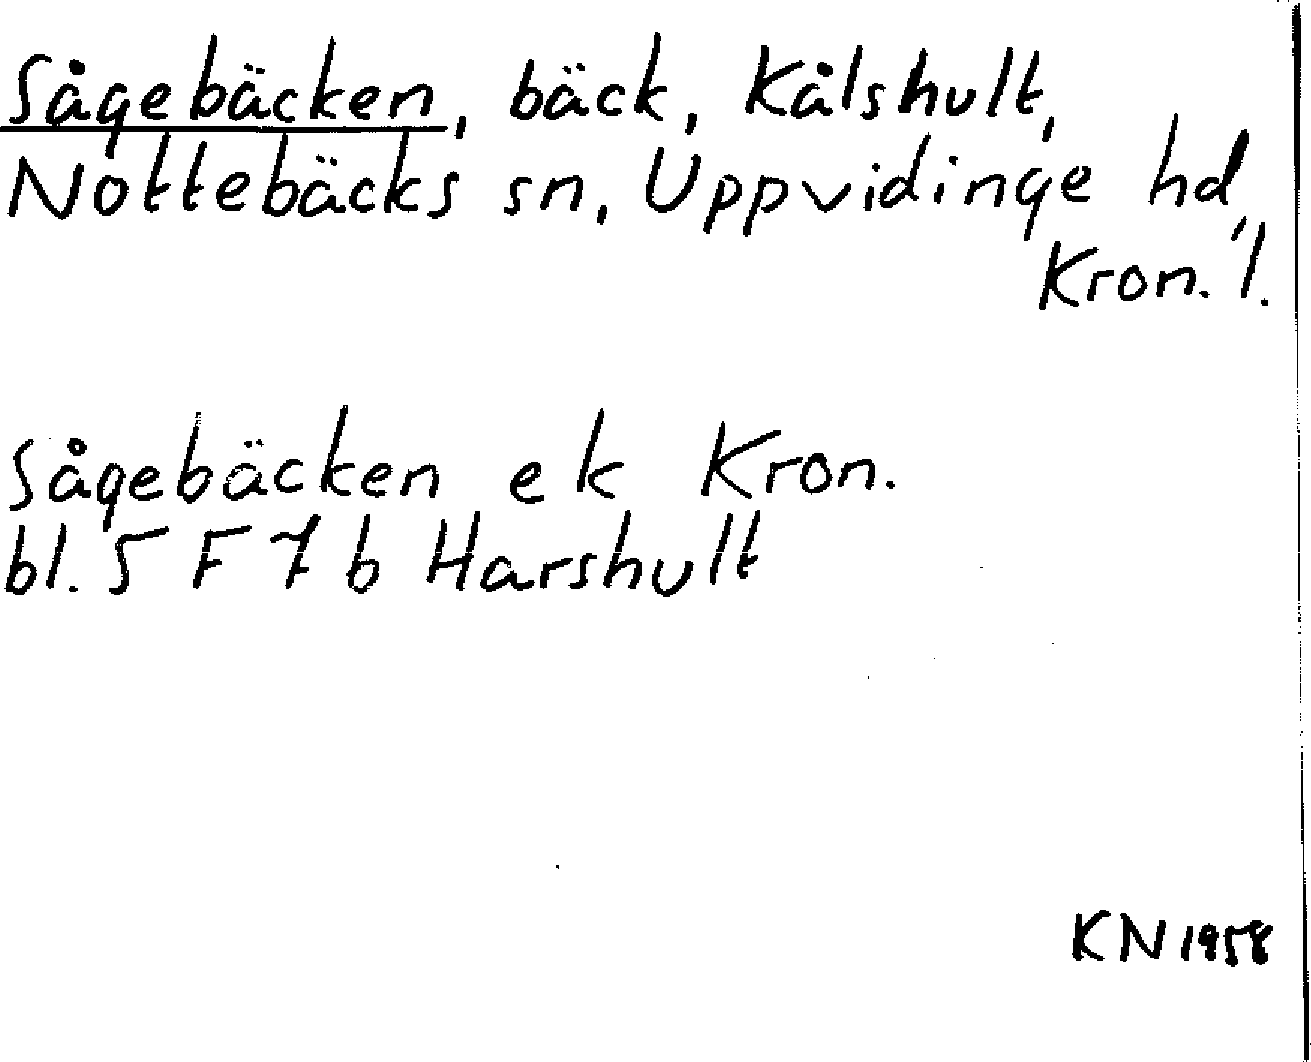 Sågebäcken, bäck, Kålshult,
Nottebäcks sn, Uppvidinge hd,
Kron. l.
Sågebäcken ek Kron.
bl. 5 F 7 b Harshult
KN 1958